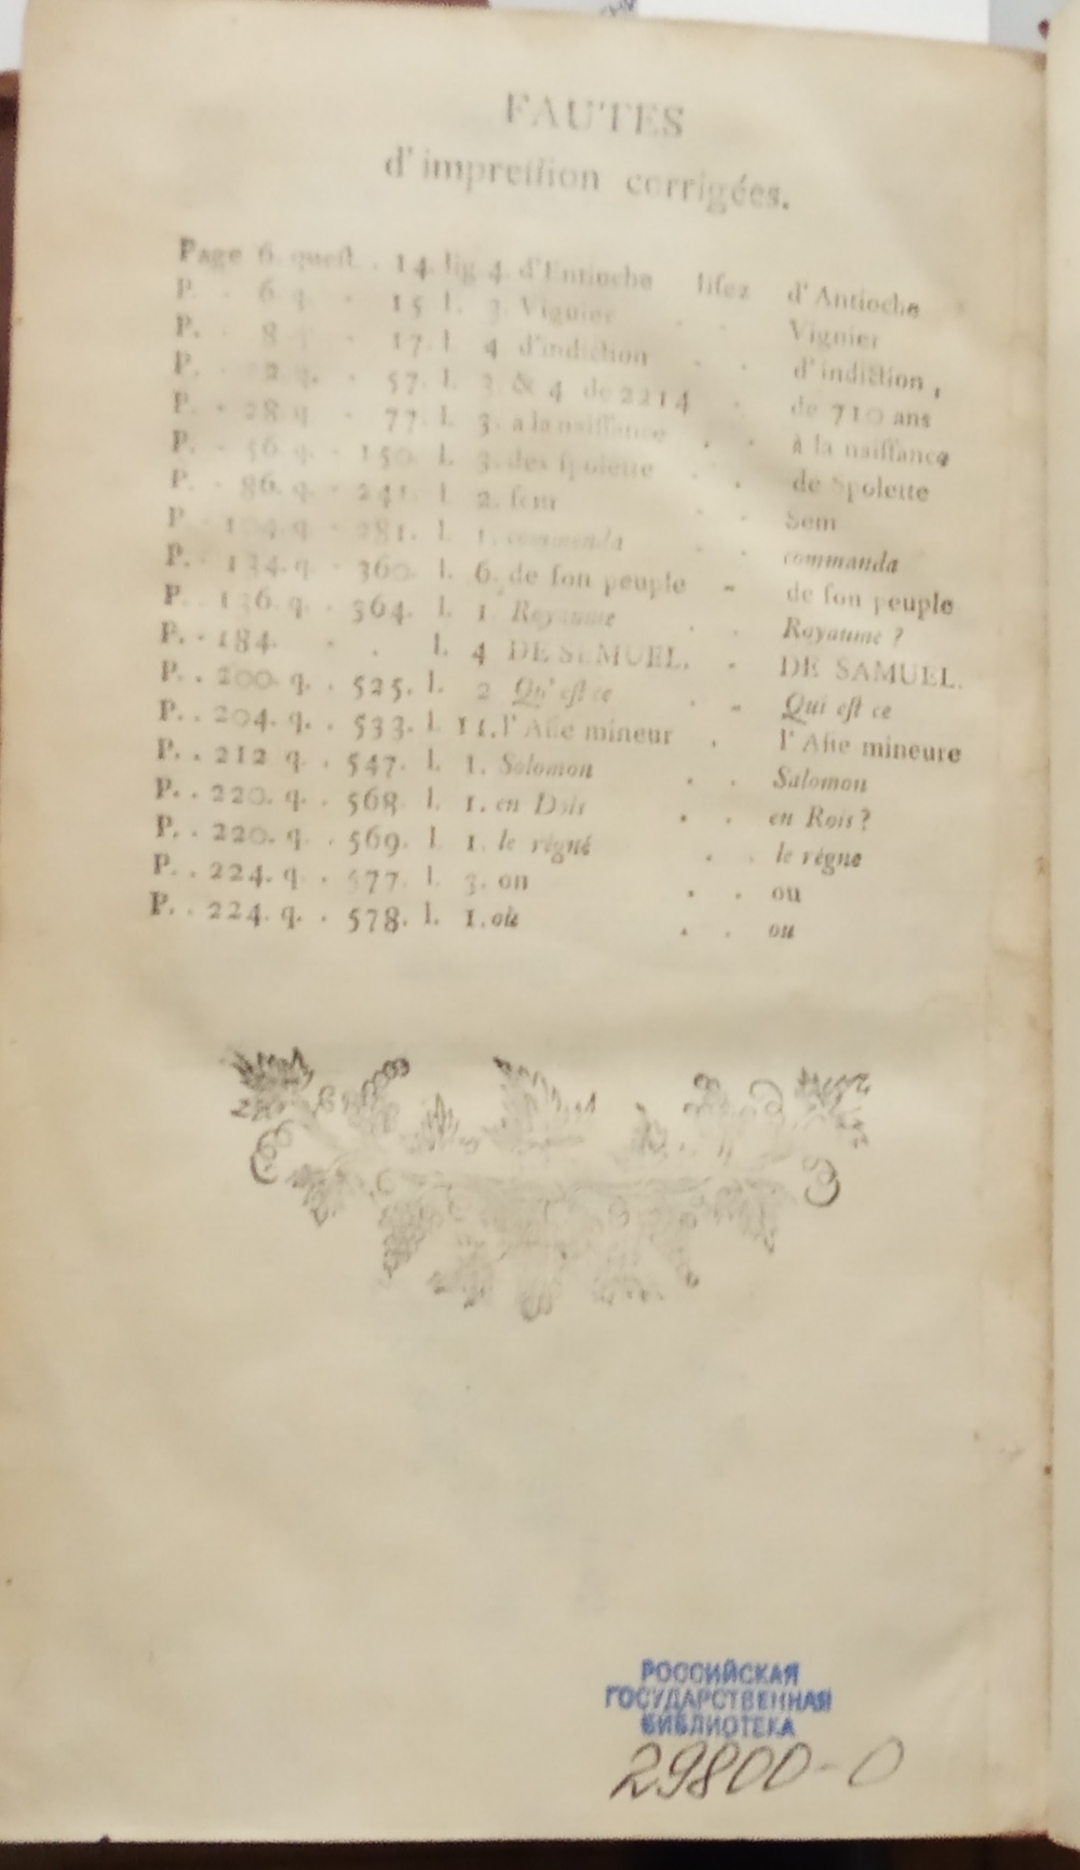 FAUTES
d'impreſſion corrigées.
Page 6. queſt. . 14. lig 4. d'Entioche liſez d'Antioche
P. . 6 q. . 15 l. 3. Viguier . . Vignier
P. . 8 . 17. l. 4 d'indiction . . d'indiction,
P. q. . 57. l. 3 & 4 de 2214 . de 710 ans
P. . 28. q . 77. l. 3. a la naiſſance . . à la naiſſance
P. . 56. q. . 150. l. 3. des ſpolette . . de Spolette
P. . 86. q. . 241. l. 2. ſem . . Sem
P. . 104. q. . 281. l. 1. commenda . . commanda
P. . 134. q. . 360. l. 6. de ſon peuple - de ſon peuple
P. . 136. q. . 364. l. 1. Royaume . . Royaume ?
P. . 184. . . l. 4 DE SEMUEL. . DE SAMUEL.
P. . 200. q. . 525. l. 2 Qu'eſt ce . . Qui eſt ce
P. . 204. q. . 533. l. 11. l'Aſie mineur . l'Aſie mineure
P. . 212 q. . 547. l. 1. Solomon . . Salomon
P. . 220. q. . 568 l. 1. en Dois . . en Rois ?
P. . 220. q. . 569. l. 1. le régné . . le régne
P. . 224. q . 577. l. 3. on . . ou
P. . 224. q. . 578. l. 1. où . . ou
РОССИЙСКАЯ
ГОСУДАРСТВЕННАЯ
БИБЛИОТЕКА
29800-0